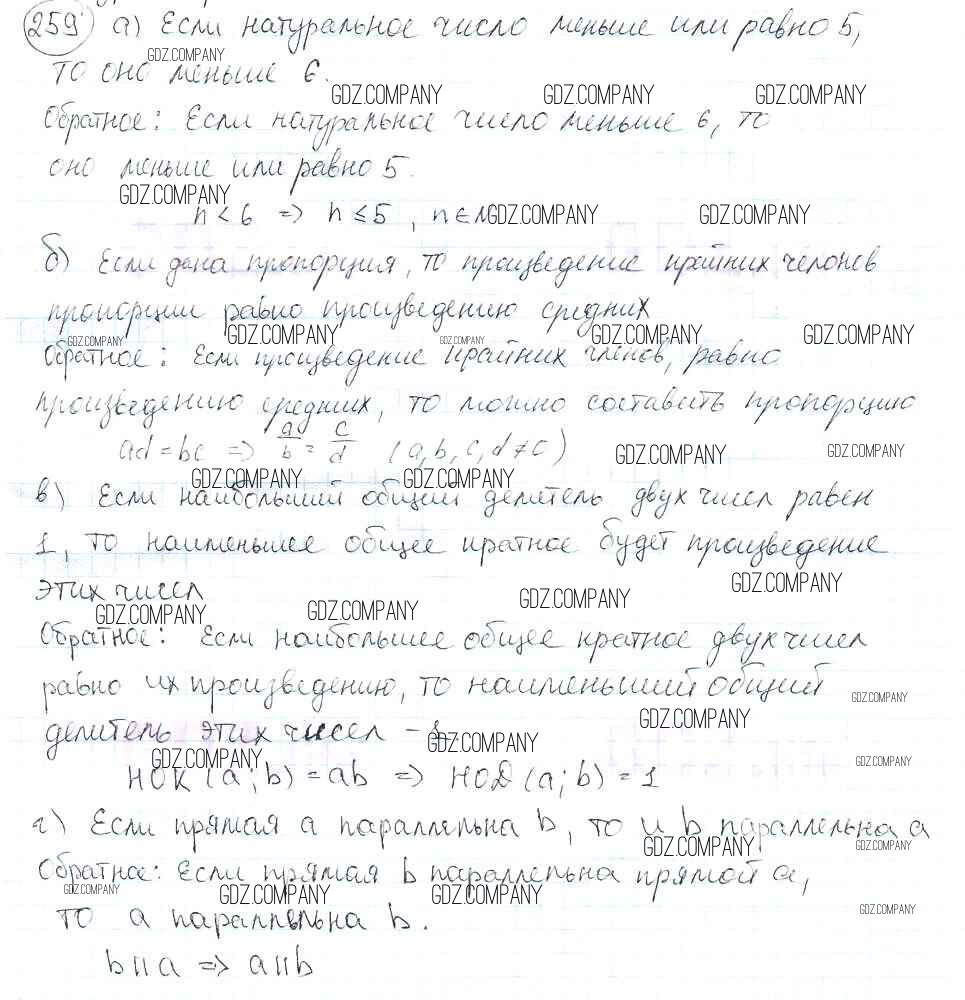 259 а) Если натуральное число меньше или равно 5,
GDZ.COMPANY
то оно меньше 6.
GDZ.COMPANY GDZ.COMPANY GDZ.COMPANY
Обратное: Если натуральное число меньше 6, то
оно меньше или равно 5.
GDZ.COMPANY
n < 6 => n ≤ 5, n ∈ N GDZ.COMPANY GDZ.COMPANY
б) Если дана пропорция, то произведение крайних членов
пропорции равно произведению средних
GDZ.COMPANY GDZ.COMPANY GDZ.COMPANY GDZ.COMPANY GDZ.COMPANY
Обратное: Если произведение крайних членов, равно
произведению средних, то можно составить пропорцию
ad = bc => a/b = c/d (a, b, c, d ≠ 0) GDZ.COMPANY GDZ.COMPANY
GDZ.COMPANY GDZ.COMPANY
в) Если наибольший общий делитель двух чисел равен
1, то наименьшее общее кратное будет произведение
этих чисел GDZ.COMPANY
GDZ.COMPANY GDZ.COMPANY GDZ.COMPANY
Обратное: Если наибольшее общее кратное двух чисел
равно их произведению, то наименьший общий
GDZ.COMPANY
делитель этих чисел - 1 GDZ.COMPANY
GDZ.COMPANY GDZ.COMPANY GDZ.COMPANY
НОК (a; b) = ab => НОД (a; b) = 1
г) Если прямая a параллельна b, то и b параллельна a
GDZ.COMPANY GDZ.COMPANY
Обратное: Если прямая b параллельна прямой a,
GDZ.COMPANY GDZ.COMPANY GDZ.COMPANY GDZ.COMPANY
то a параллельна b.
b || a => a || b